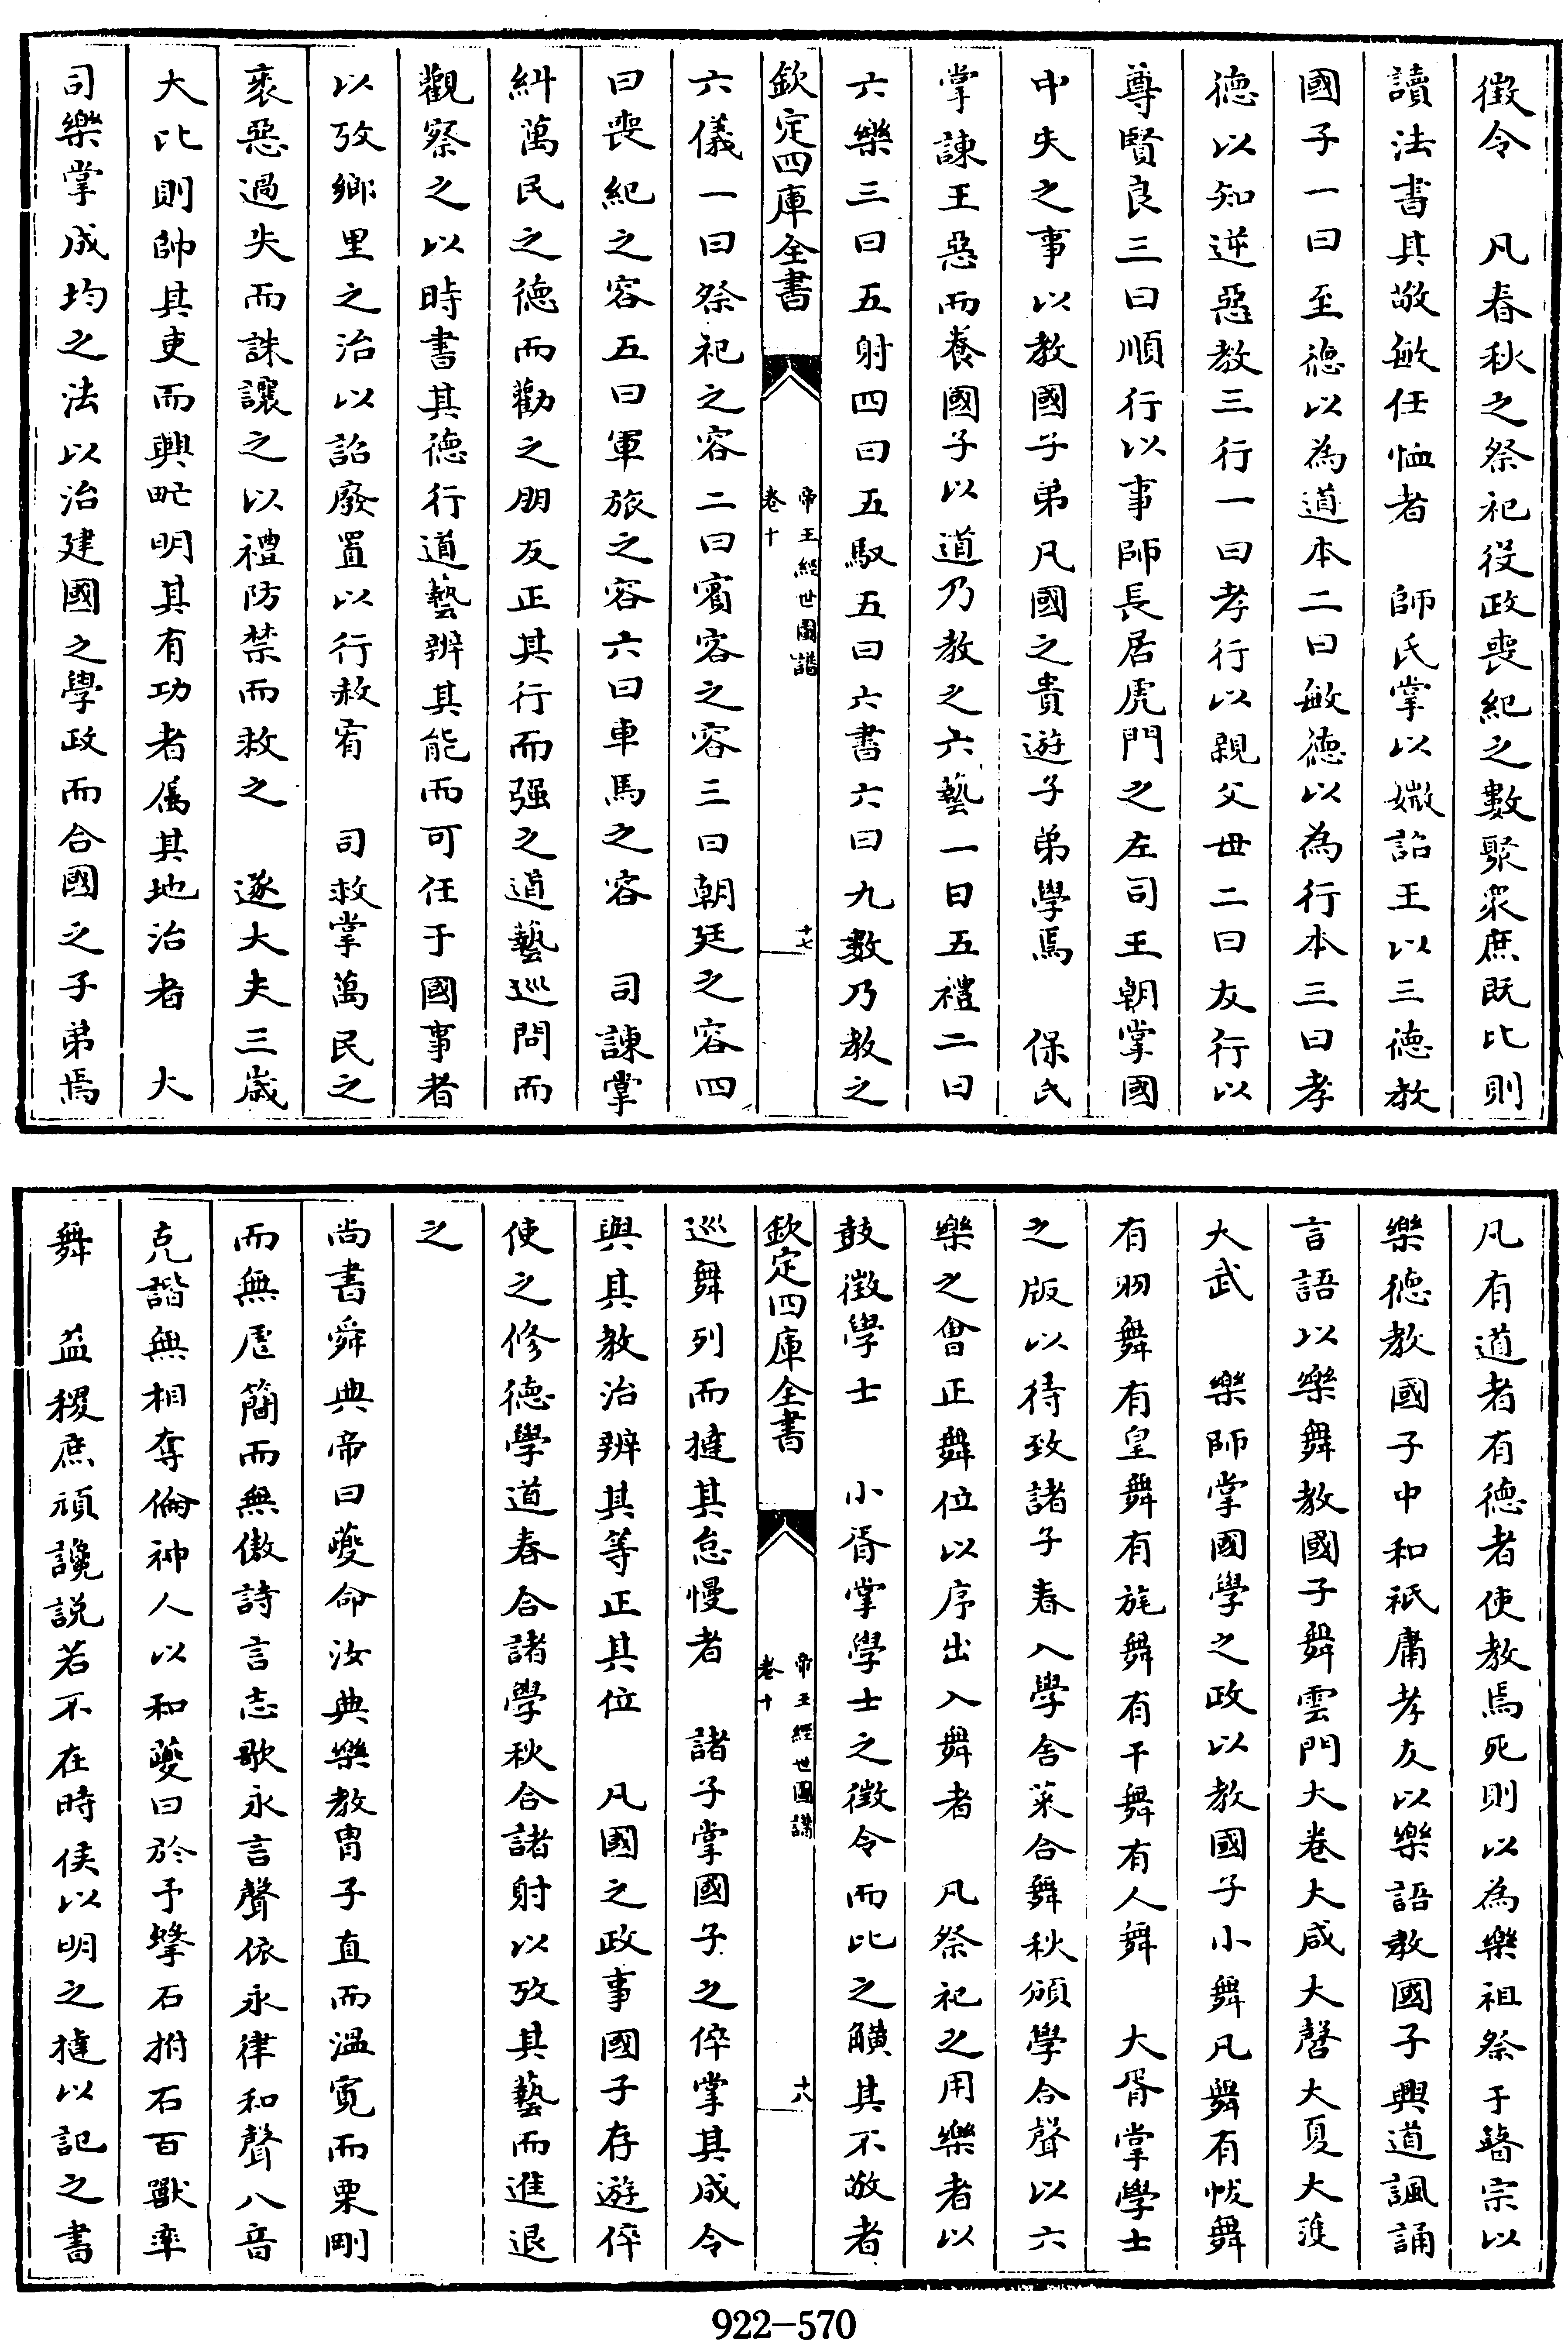 徵令　凡春秋之祭祀役政喪紀之數聚衆庶既比則
讀法書其敬敏任恤者　師氏掌以媺詔王以三德教
國子一曰至德以為道本二曰敏德以為行本三曰孝
德以知逆惡教三行一曰孝行以親父母二曰友行以
尊賢良三曰順行以事師長居虎門之左司王朝掌國
中失之事以教國子弟凡國之貴遊子弟學焉　保氏
掌諫王惡而養國子以道乃教之六藝一曰五禮二曰
六樂三曰五射四曰五馭五曰六書六曰九數乃教之
欽定四庫全書
帝王經世圖譜
卷十
十七
六儀一曰祭祀之容二曰賓客之容三曰朝廷之容四
曰喪紀之容五曰軍旅之容六曰車馬之容　司諫掌
糾萬民之德而勸之朋友正其行而强之道藝巡問而
觀察之以時書其德行道藝辨其能而可任于國事者
以攷鄉里之治以詔廢置以行赦宥　司救掌萬民之
衺惡過失而誅讓之以禮防禁而救之　遂大夫三歲
大比則帥其吏而興甿明其有功者屬其地治者　大
司樂掌成均之法以治建國之學政而合國之子弟焉
凡有道者有德者使教焉死則以為樂祖祭于瞽宗以
樂德教國子中和祇庸孝友以樂語教國子興道諷誦
言語以樂舞教國子舞雲門大卷大咸大㲈大夏大濩
大武　樂師掌國學之政以教國子小舞凡舞有帗舞
有羽舞有皇舞有旄舞有干舞有人舞　大胥掌學士
之版以待致諸子春入學舍菜合舞秋頒學合聲以六
樂之會正舞位以序出入舞者　凡祭祀之用樂者以
鼓徵學士　小胥掌學士之徵令而比之觵其不敬者
欽定四庫全書
帝王經世圖譜
卷十
十八
巡舞列而撻其怠慢者　諸子掌國子之倅掌其戒令
與其教治辨其等正其位　凡國之政事國子存遊倅
使之修德學道春合諸學秋合諸射以攷其藝而進退
之
尚書舜典帝曰夔命汝典樂教胄子直而溫寬而栗剛
而無虐簡而無傲詩言志歌永言聲依永律和聲八音
克諧無相奪倫神人以和夔曰於予擊石拊石百獸率
舞　益稷庶頑讒說若不在時侯以明之撻以記之書
922-570